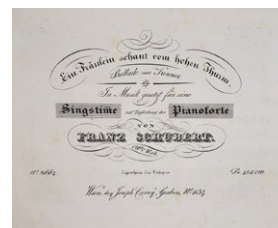 Ein Fräulein schaut vom hohen Thurm.
Ballade von Kenner
In Musik gesetzt für eine
Singstime mit Begleitung des Pianoforte
VON
FRANZ SCHUBERT.
Eigenthum des Verlegers
Wien, bey Joseph Czerný, Graben, Nº 1134.